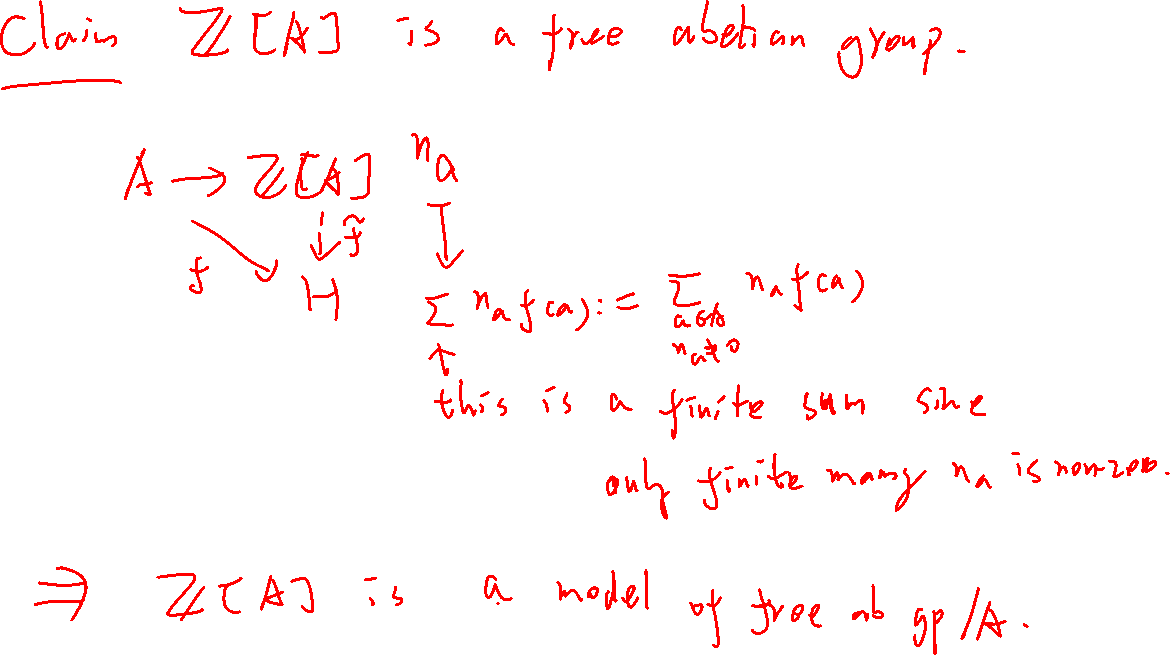 Claim ℤ[A] is a free abelian group.
A → ℤ[A] n_a
f f̃ ↓
H ∑ n_a f(a) := ∑ n_a f(a)
a∈A
↑ n_a≠0
this is a finite sum sine
only finite many n_a is non-zero.
⇒ ℤ[A] is a model of free ab gp/A.